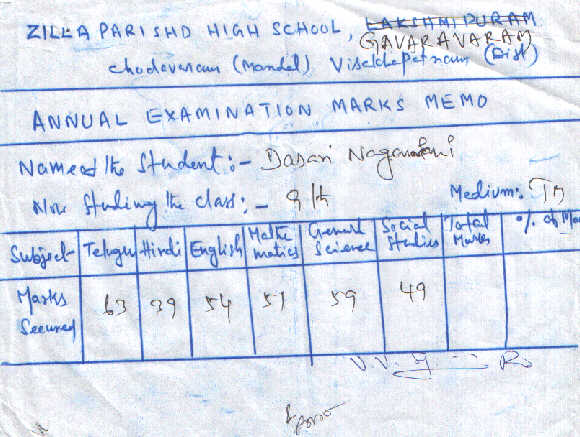 ZILLA PARISHD HIGH SCHOOL, LAKSHMIPURAM
GAVARAVARAM
chodavaram (Mandal) Visakhapatnam (Dist)
ANNUAL EXAMINATION MARKS MEMO
Name of the Student:- Dasari Nagamani
Now Studing the class:- 9th Medium: TM
Subject Telugu Hindi English Mathematics General Science Social Studies Total Marks % of Ma
Marks Secured 63 39 54 51 59 49
V.V.